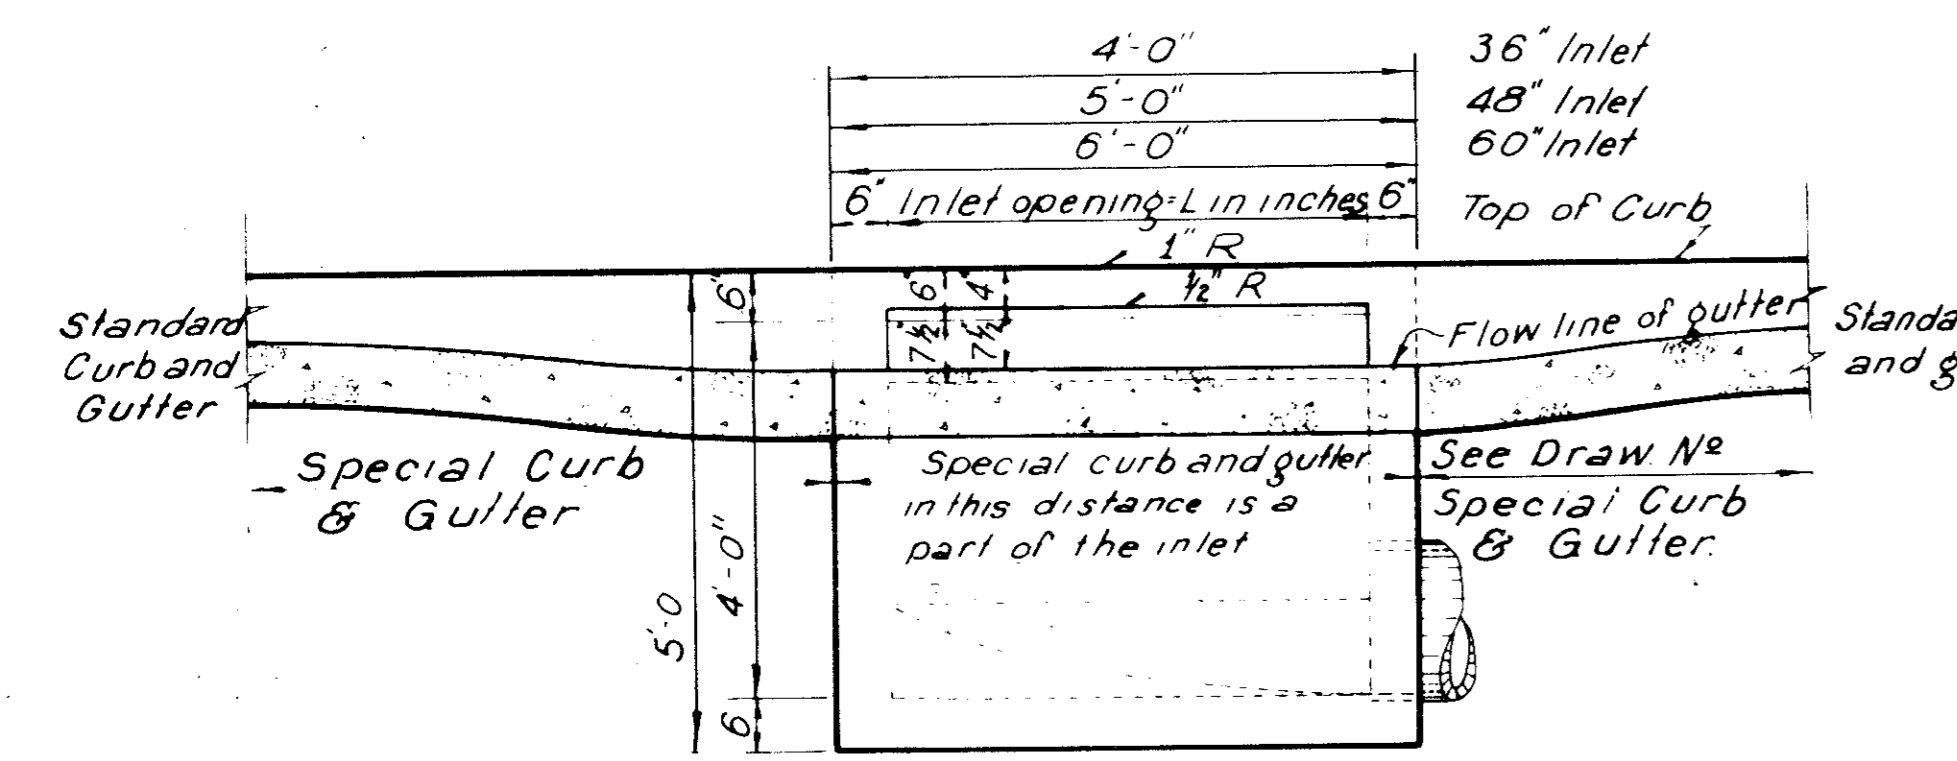 4'-0" 36" Inlet
5'-0" 48" Inlet
6'-0" 60" Inlet
6" Inlet opening=L in inches 6" Top of Curb
1" R
½" R
6" 6" 4"
7½" 7½"
Flow line of gutter
Standard
Curb and
Gutter
Standa
and g
Special Curb
& Gutter
Special curb and gutter
in this distance is a
part of the inlet
See Draw. Nº
Special Curb
& Gutter.
5'-0
4'-0"
6